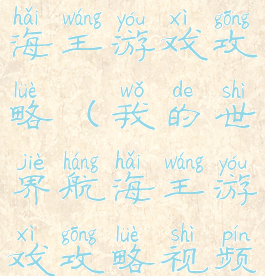 hǎi wáng yóu xì gōng
海王游戏攻
lüè wǒ de shì
略(我的世
jiè háng hǎi wáng yóu
界航海王游
xì gōng lüè shì pín
戏攻略视频